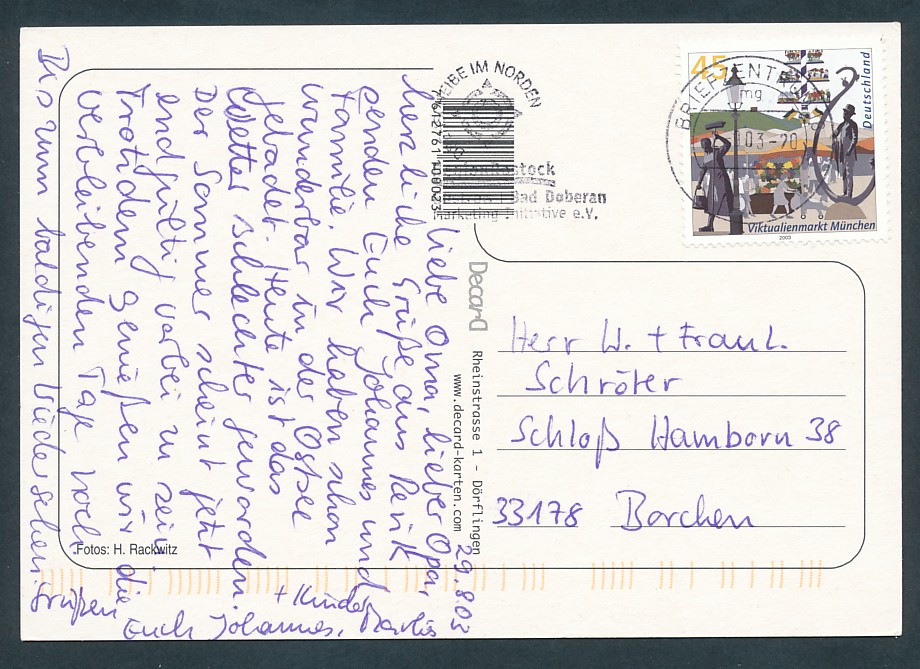 29.8.03
Liebe Oma, lieber Opa,
herzliche Grüße aus Rerik
senden Euch Johannes und
Familie. Wir haben schon
wunderbar in der Ostsee
gebadet. Heute ist das
Wetter schlechter geworden.
Der Sommer scheint jetzt
endgültig vorbei zu sein.
Trotzdem genießen wir die
verbleibenden Tage noch.
Bis zum baldigen Wiedersehen
Grüßen
Euch Johannes,
+ Kinder
Fotos: H. Rackwitz
Decard
Rheinstrasse 1 - Dörflingen
www.decard-karten.com
EIBE IM NORDEN
Bad Doberan
Marketing Initiative e.V.
BRIEFZENTRUM
mg
.03-20
45
Deutschland
Viktualienmarkt München
2003
Herr W. + Frau L.
Schröter
Schloß Hamborn 38
33178 Borchen